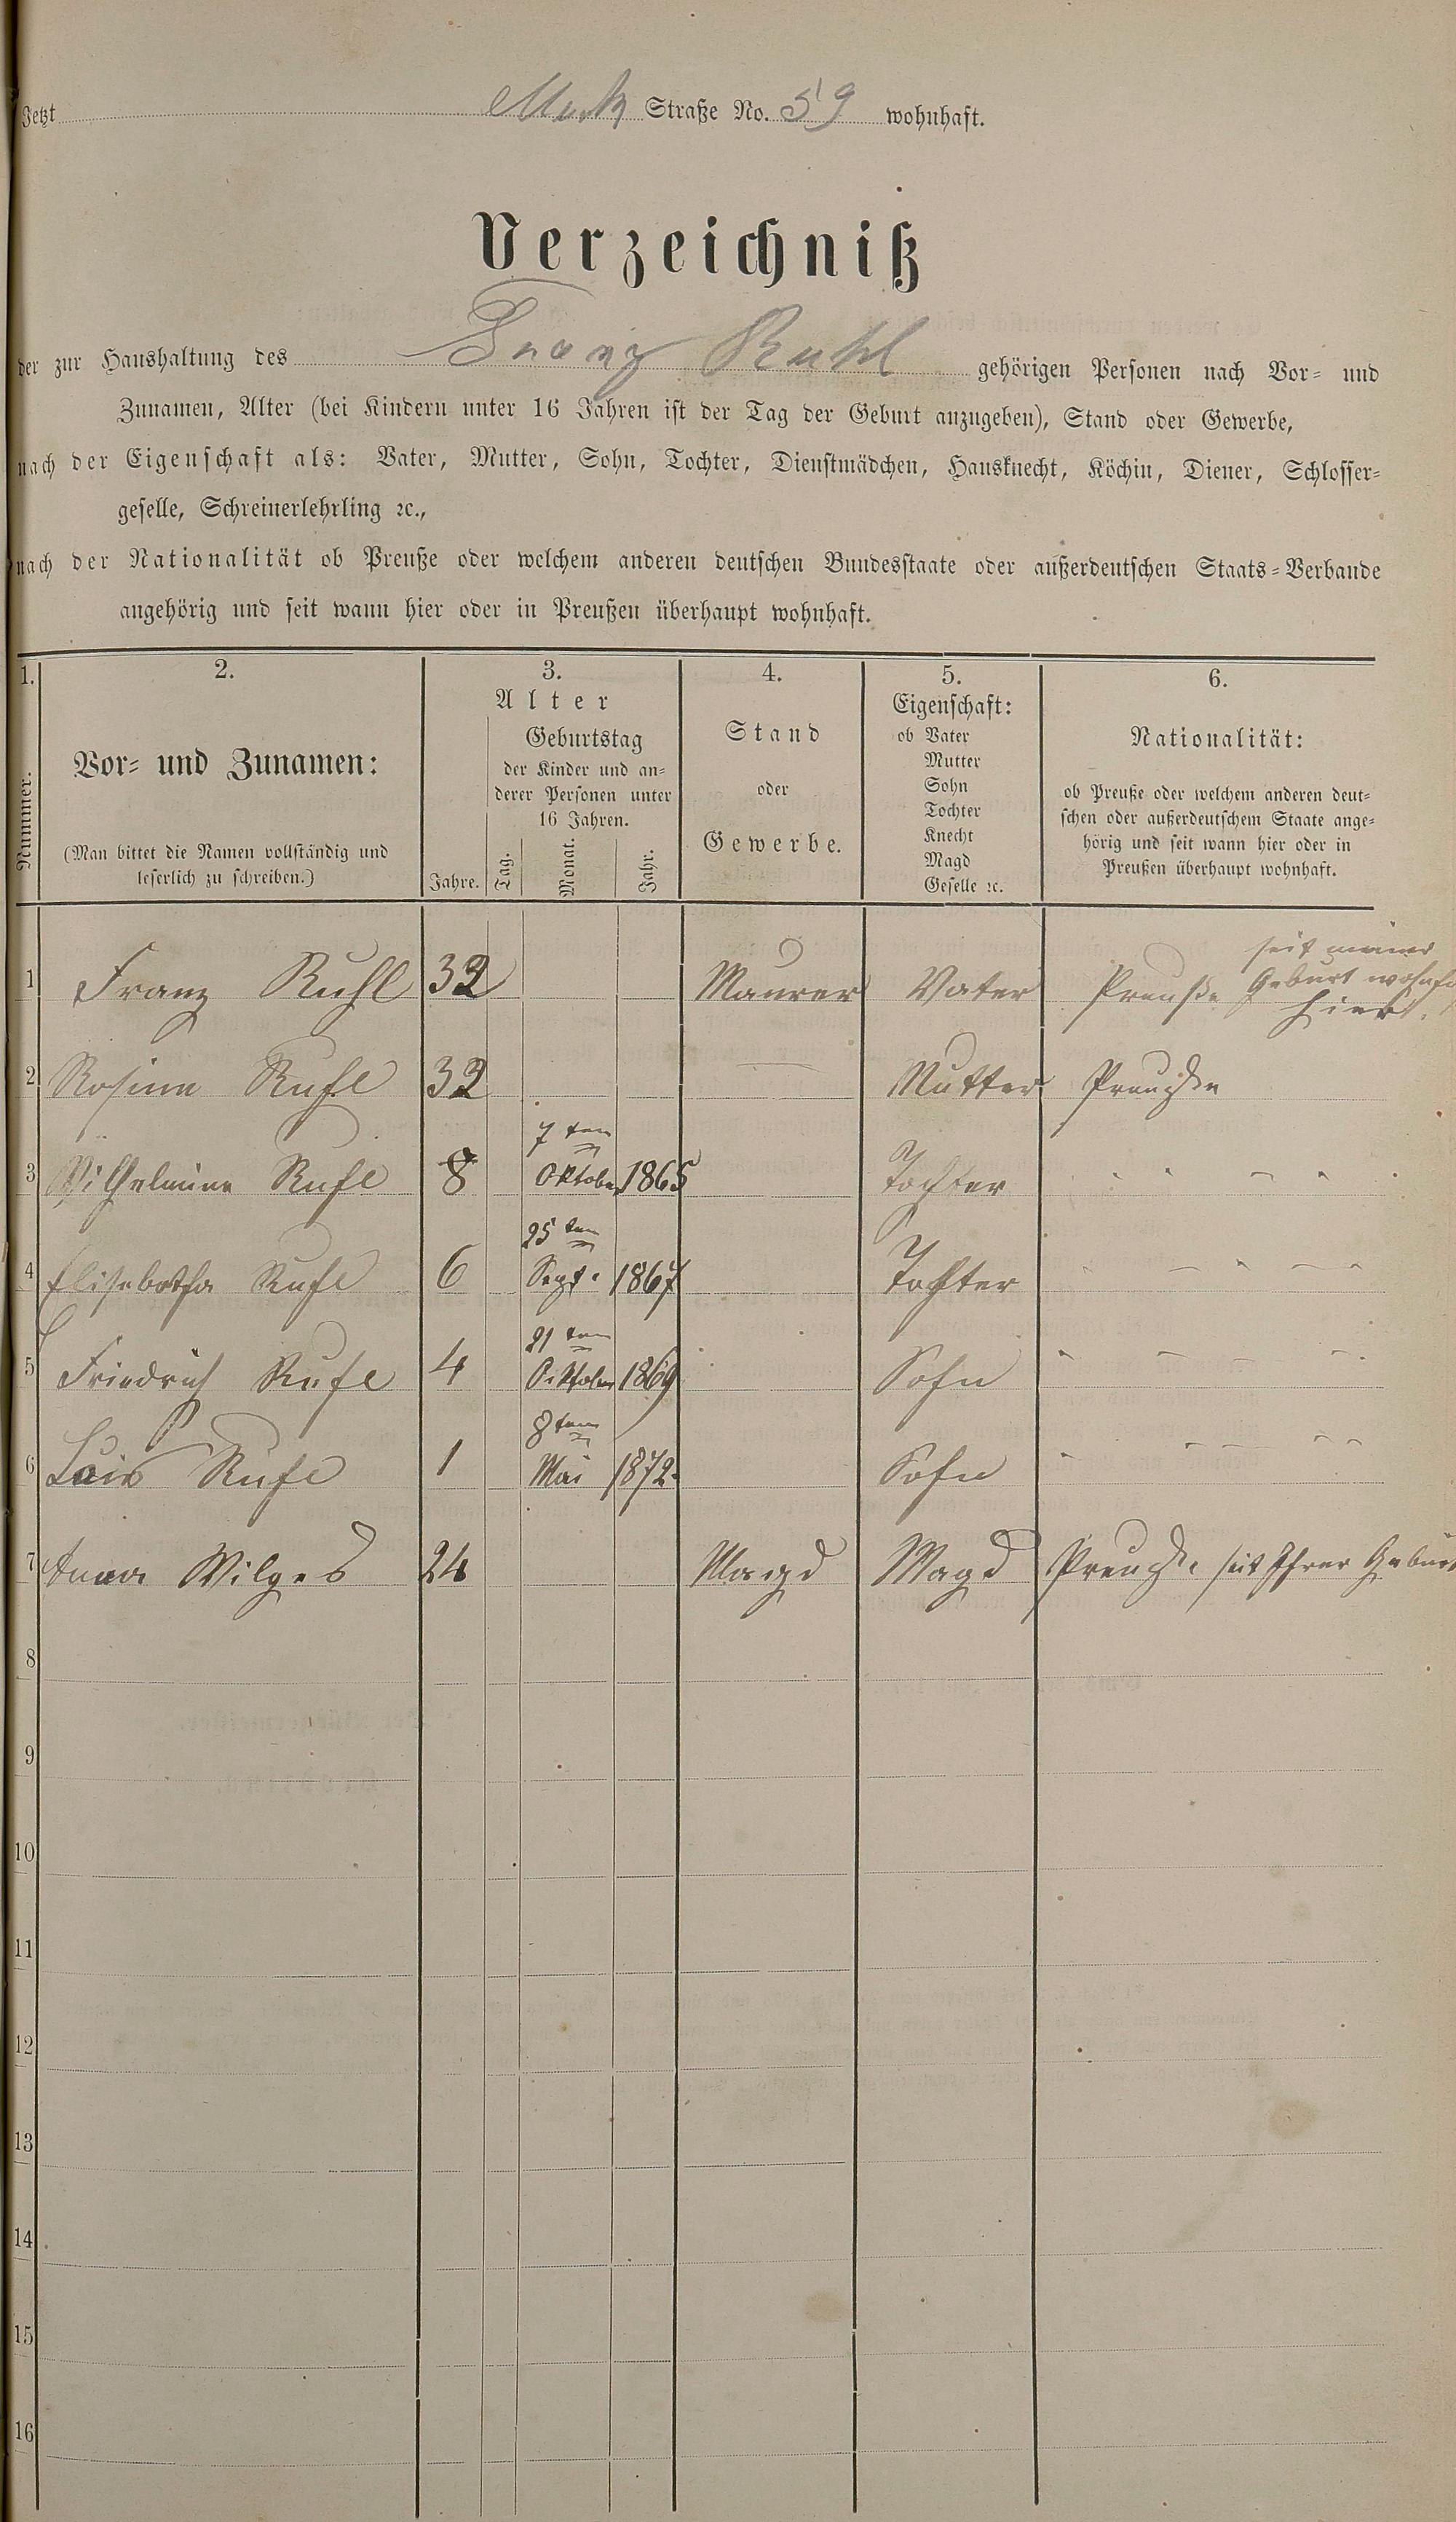 Jetzt Markt Straße No. 59 wohnhaft.
Verzeichniß
der zur Haushaltung des Franz Ruhl gehörigen Personen nach Vor- und
Zunamen, Alter (bei Kindern unter 16 Jahren ist der Tag der Geburt anzugeben), Stand oder Gewerbe,
nach der Eigenschaft als: Vater, Mutter, Sohn, Tochter, Dienstmädchen, Hausknecht, Köchin, Diener, Schlosser-
geselle, Schreinerlehrling ꝛc.,
nach der Nationalität ob Preuße oder welchem anderen deutschen Bundesstaate oder außerdeutschen Staats-Verbande
angehörig und seit wann hier oder in Preußen überhaupt wohnhaft.
1. Nummer.
2. Vor- und Zunamen:
(Man bittet die Namen vollständig und
leserlich zu schreiben.)
3. Alter
Jahre.
Geburtstag
der Kinder und an-
derer Personen unter
16 Jahren.
Tag. Monat. Jahr.
4. Stand
oder
Gewerbe.
5. Eigenschaft:
ob Vater
Mutter
Sohn
Tochter
Knecht
Magd
Geselle ꝛc.
6. Nationalität:
ob Preuße oder welchem anderen deut-
schen oder außerdeutschem Staate ange-
hörig und seit wann hier oder in
Preußen überhaupt wohnhaft.
1 Franz Ruhl 32 Maurer Vater Preuße seit meiner
Geburt
hier.
2 Rosina Ruhl 32 Mutter Preußen
3 Wilhelmine Ruhl 8 7ten Oktober 1865 Tochter
4 Elisabetha Ruhl 6 25ten Sept. 1867 Tochter
5 Friedrich Ruhl 4 21ten Oktober 1869 Sohn
6 Luis Ruhl 1 8ten Mai 1872 Sohn
7 Anna Wilges 24 Magd Magd Preuße seit Ihrer Geburt
8
9
10
11
12
13
14
15
16